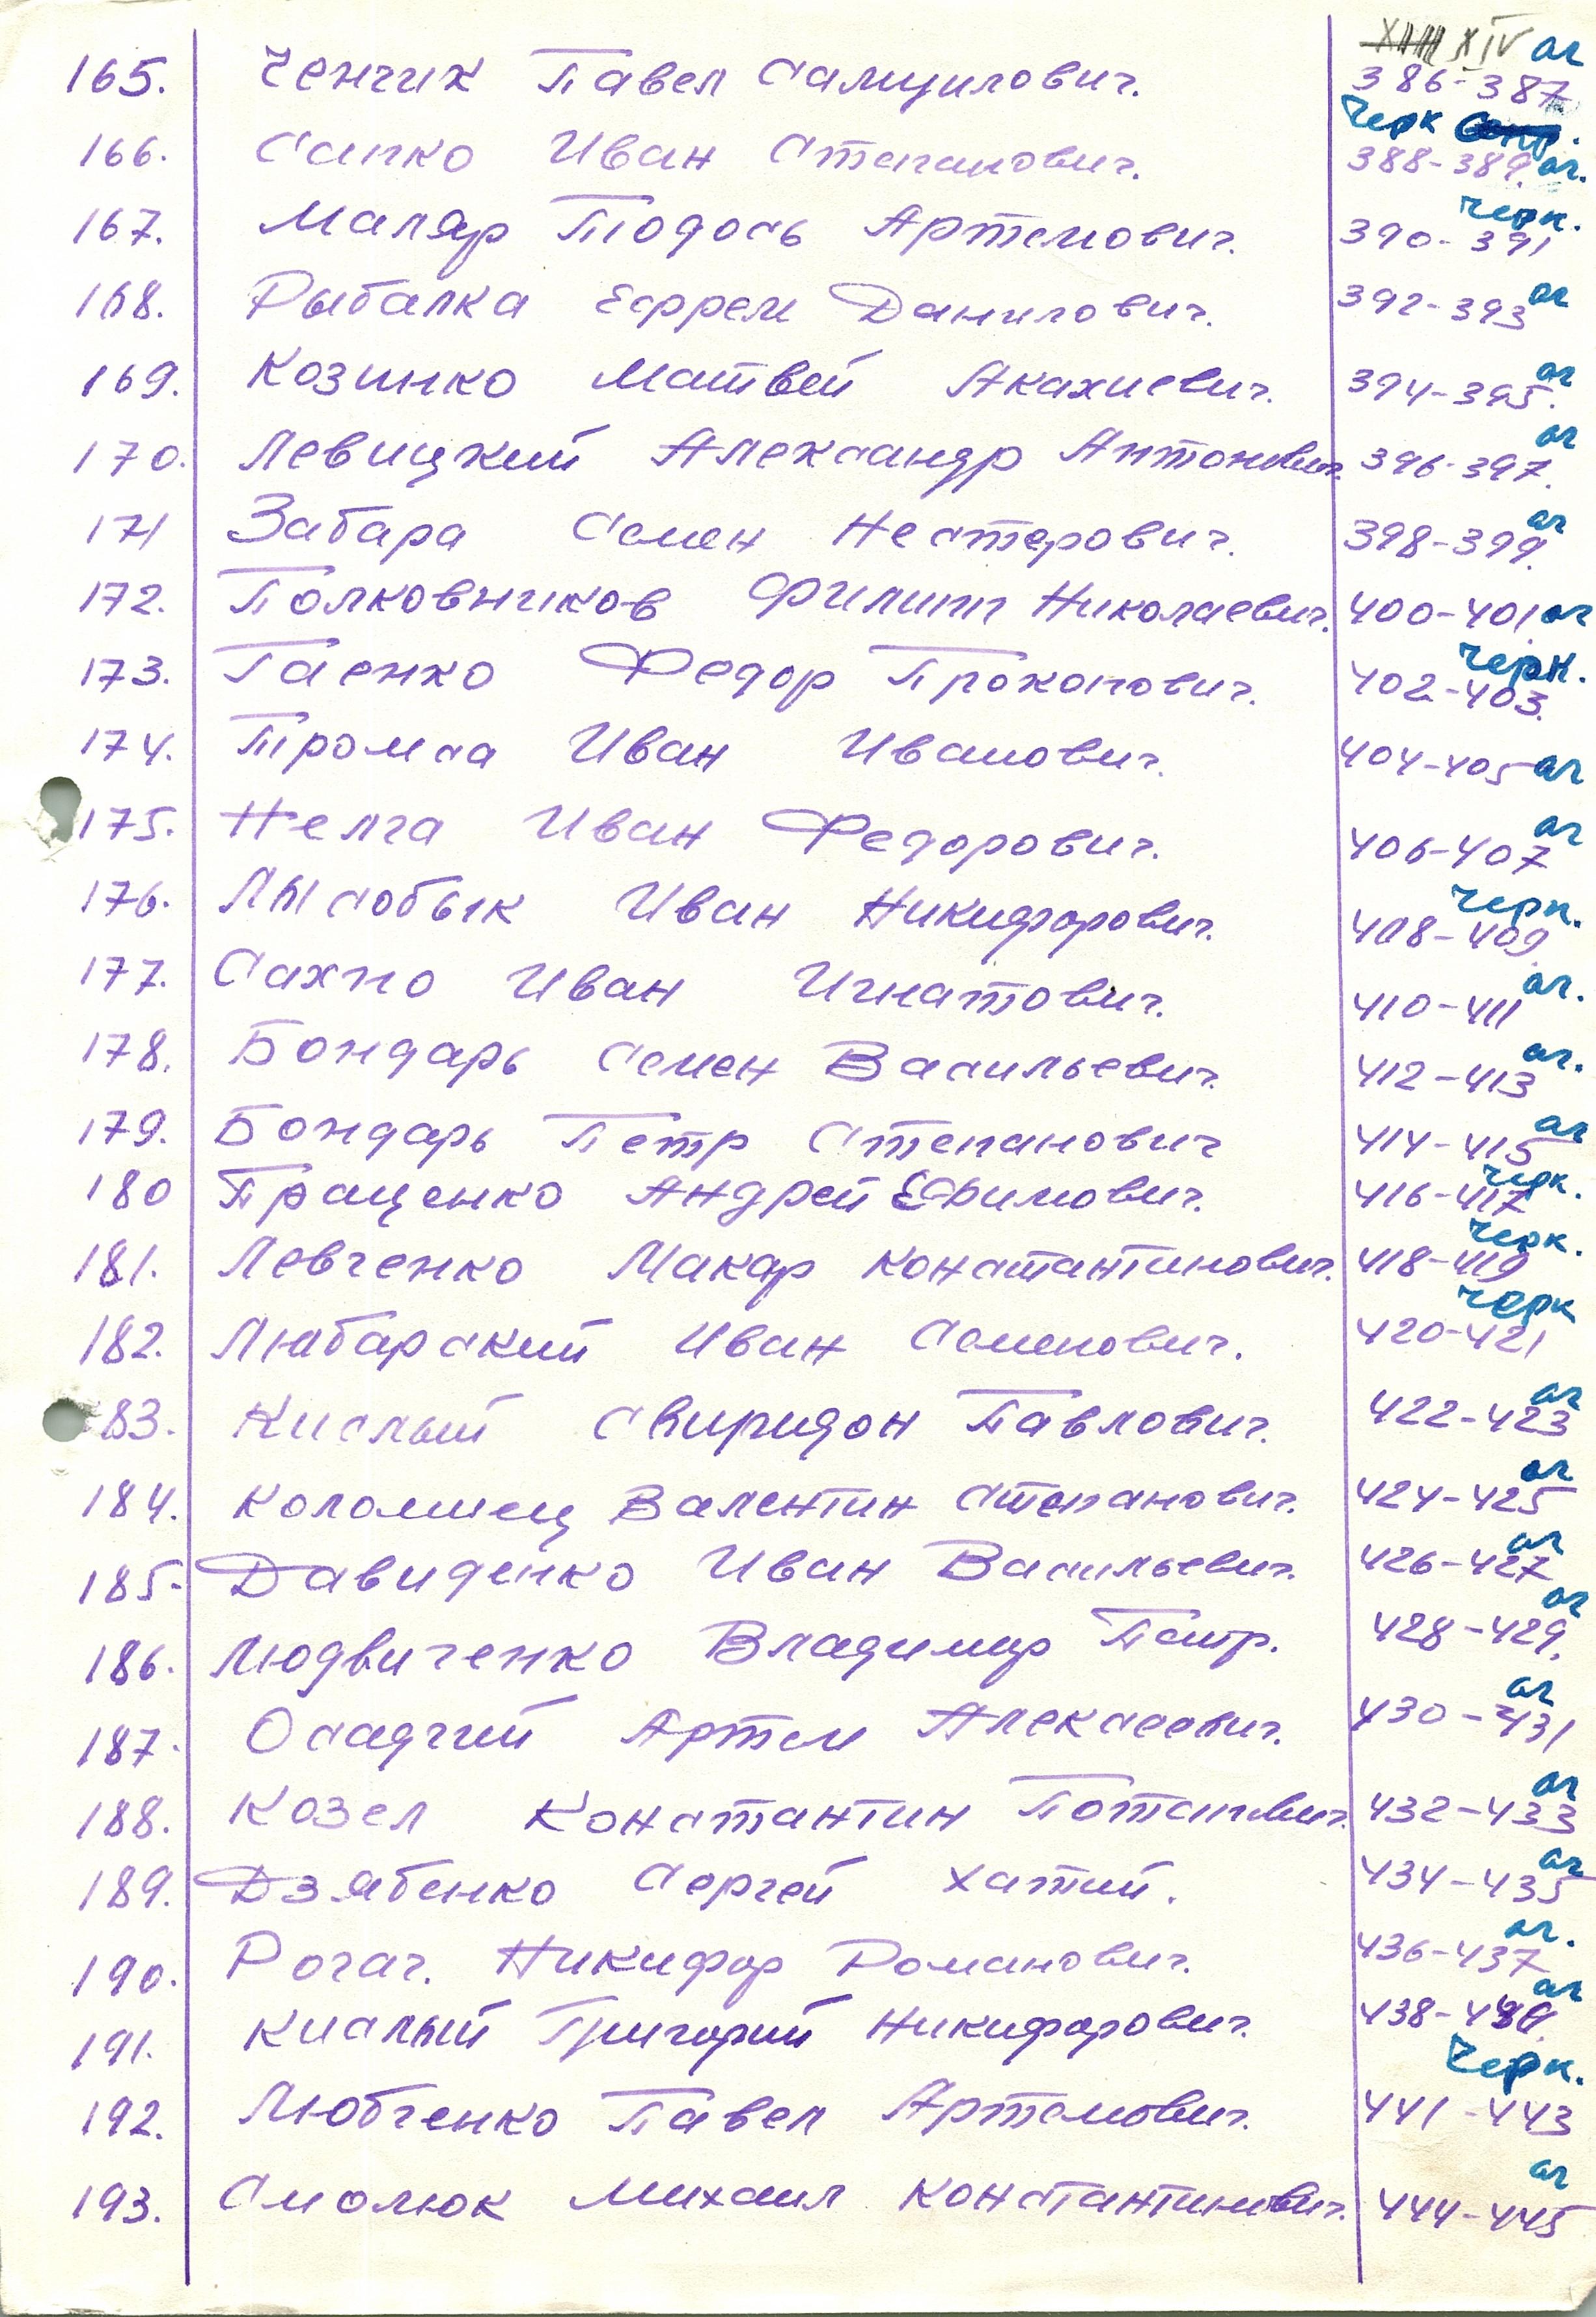 XIV ог
165. Ченчик Павел Самуилович. 386-387
Черк
166. Сапко Иван Степанович. 388-389. ог.
Черк.
167. Маляр Тодось Артемович. 390-391
168. Рыбалка Ефрем Данилович. 392-393 ог
169. Козинко Матвей Акакиевич. 394-395. ог
170. Левицкий Александр Антонович. 396-397. ог
171 Забара Семен Нестерович. 398-399. ог
172. Полковников Филипп Николаевич. 400-401. ог
Черк.
173. Гаенко Федор Прокопович. 402-403.
174. Громса Иван Иванович. 404-405 ог
175. Нелга Иван Федорович. 406-407 ог
Черк.
176. Лысобык Иван Никифорович. 408-409.
177. Сахно Иван Игнатович. 410-411 ог.
178. Бондарь Семен Васильевич. 412-413 ог.
179. Бондарь Петр Степанович 414-415 ог
180 Проценко Андрей Ефимович. 416-417 Черк.
181. Левченко Макар Константинович. 418-419 Черк.
182. Любарский Иван Семенович. 420-421 Черк
83. Кислый Свиридон Павлович. 422-423 ог
184. Коломиец Валентин Степанович. 424-425 ог
185. Давиденко Иван Васильевич. 426-427 ог
186. Людвиченко Владимир Петр. 428-429. ог
187. Осадчий Артем Алексеевич. 430-431 ог
188. Козел Константин Потапович. 432-433 ог
189. Дзябенко Сергей Хатий. 434-435 ог
190. Рогач. Никифор Романович. 436-437 ог.
191. Кислый Григорий Никифорович. 438-440. ог
Черк.
192. Любченко Павел Артемович. 441-443
193. Смолюк Михаил Константинович. 444-445 ог